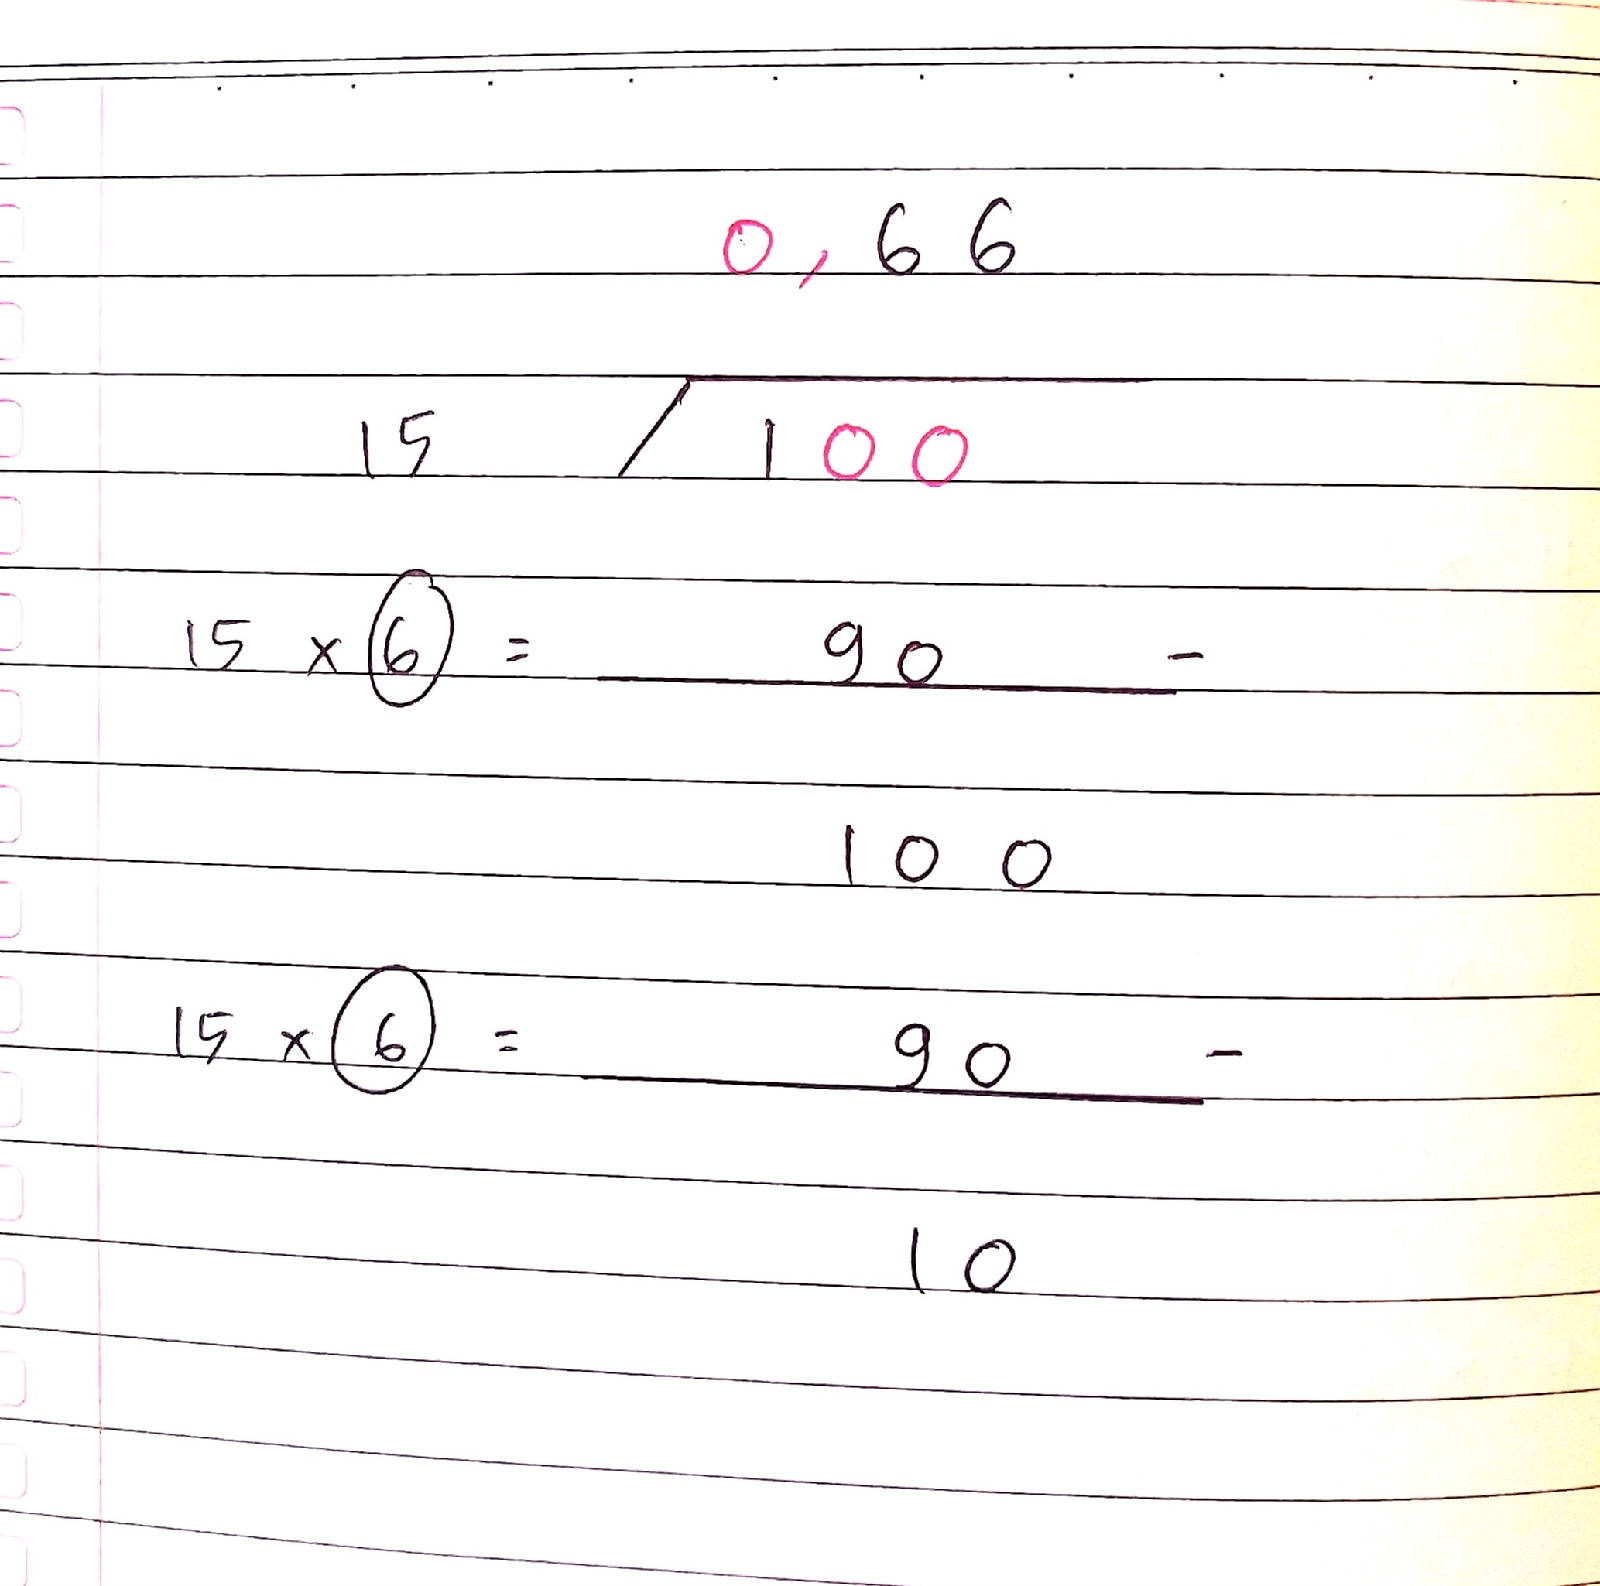 0,66
15 / 100
15 x 6 = 90 -
100
15 x 6 = 90 -
10